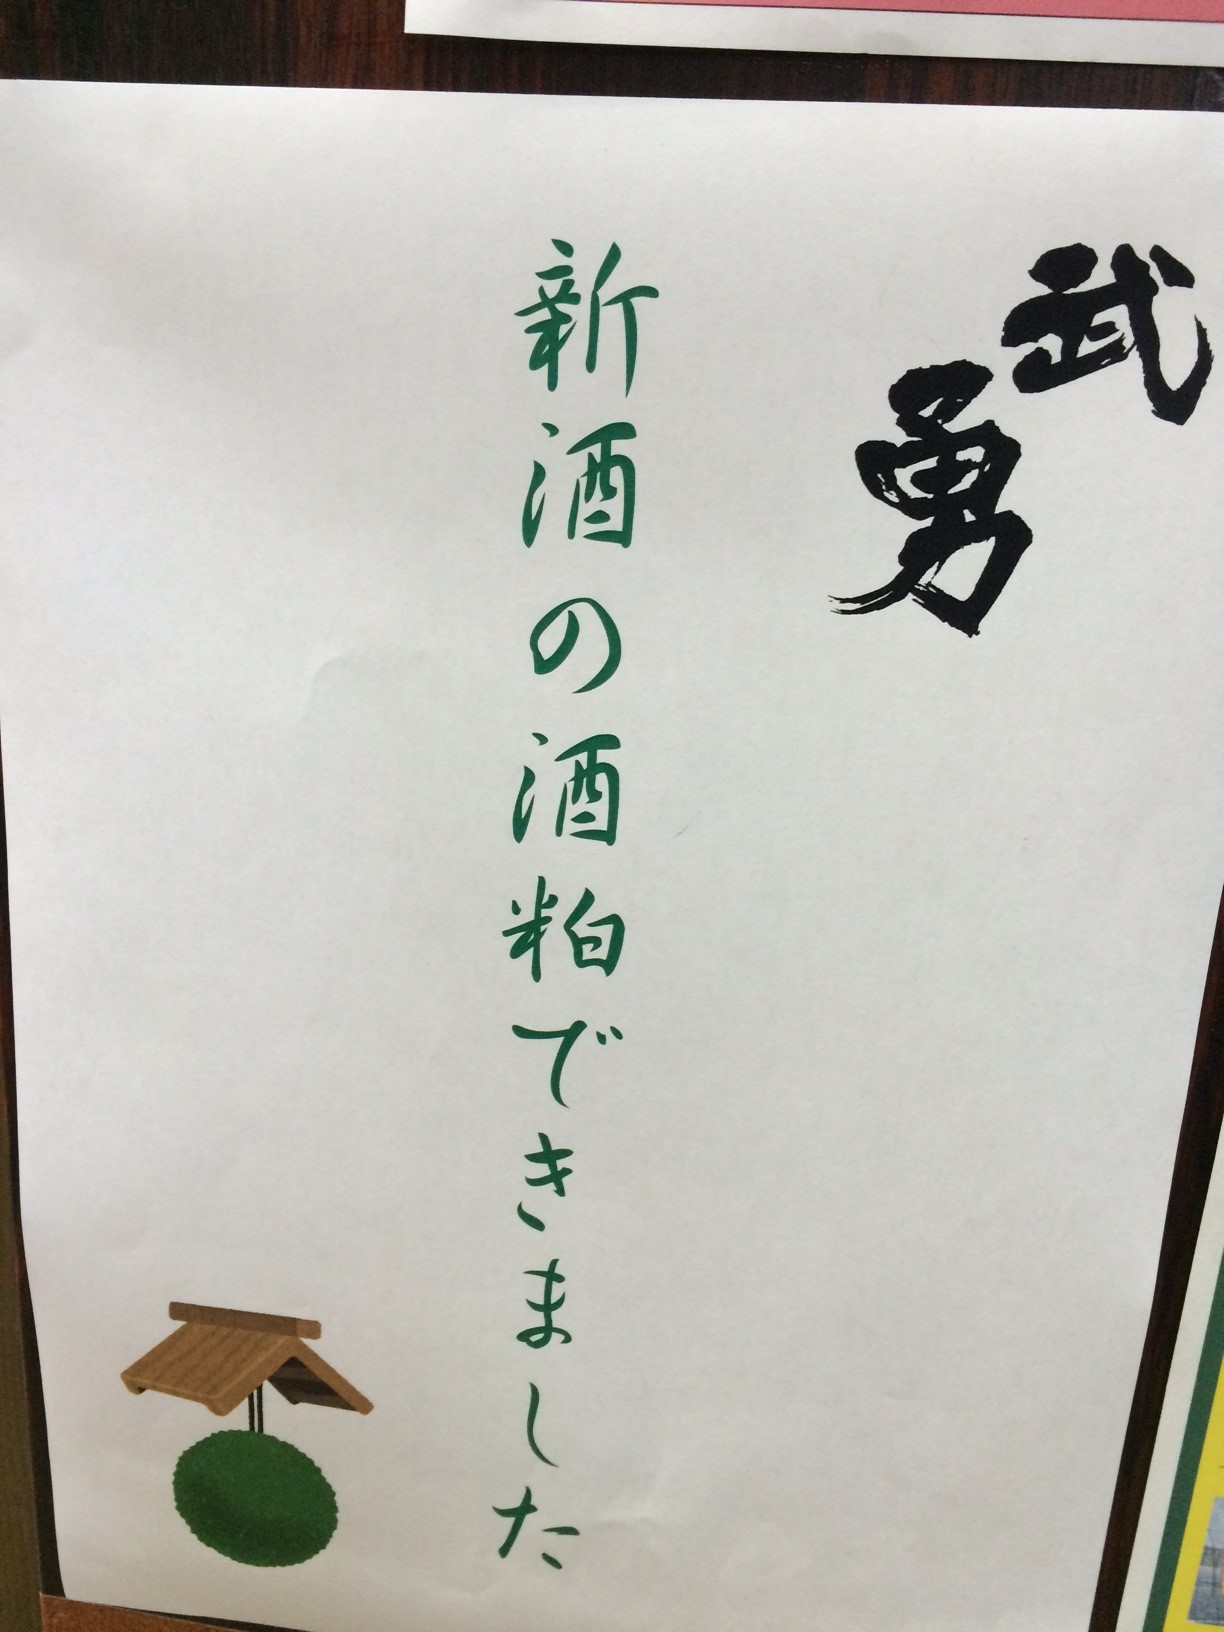 武勇
新酒の酒粕できました